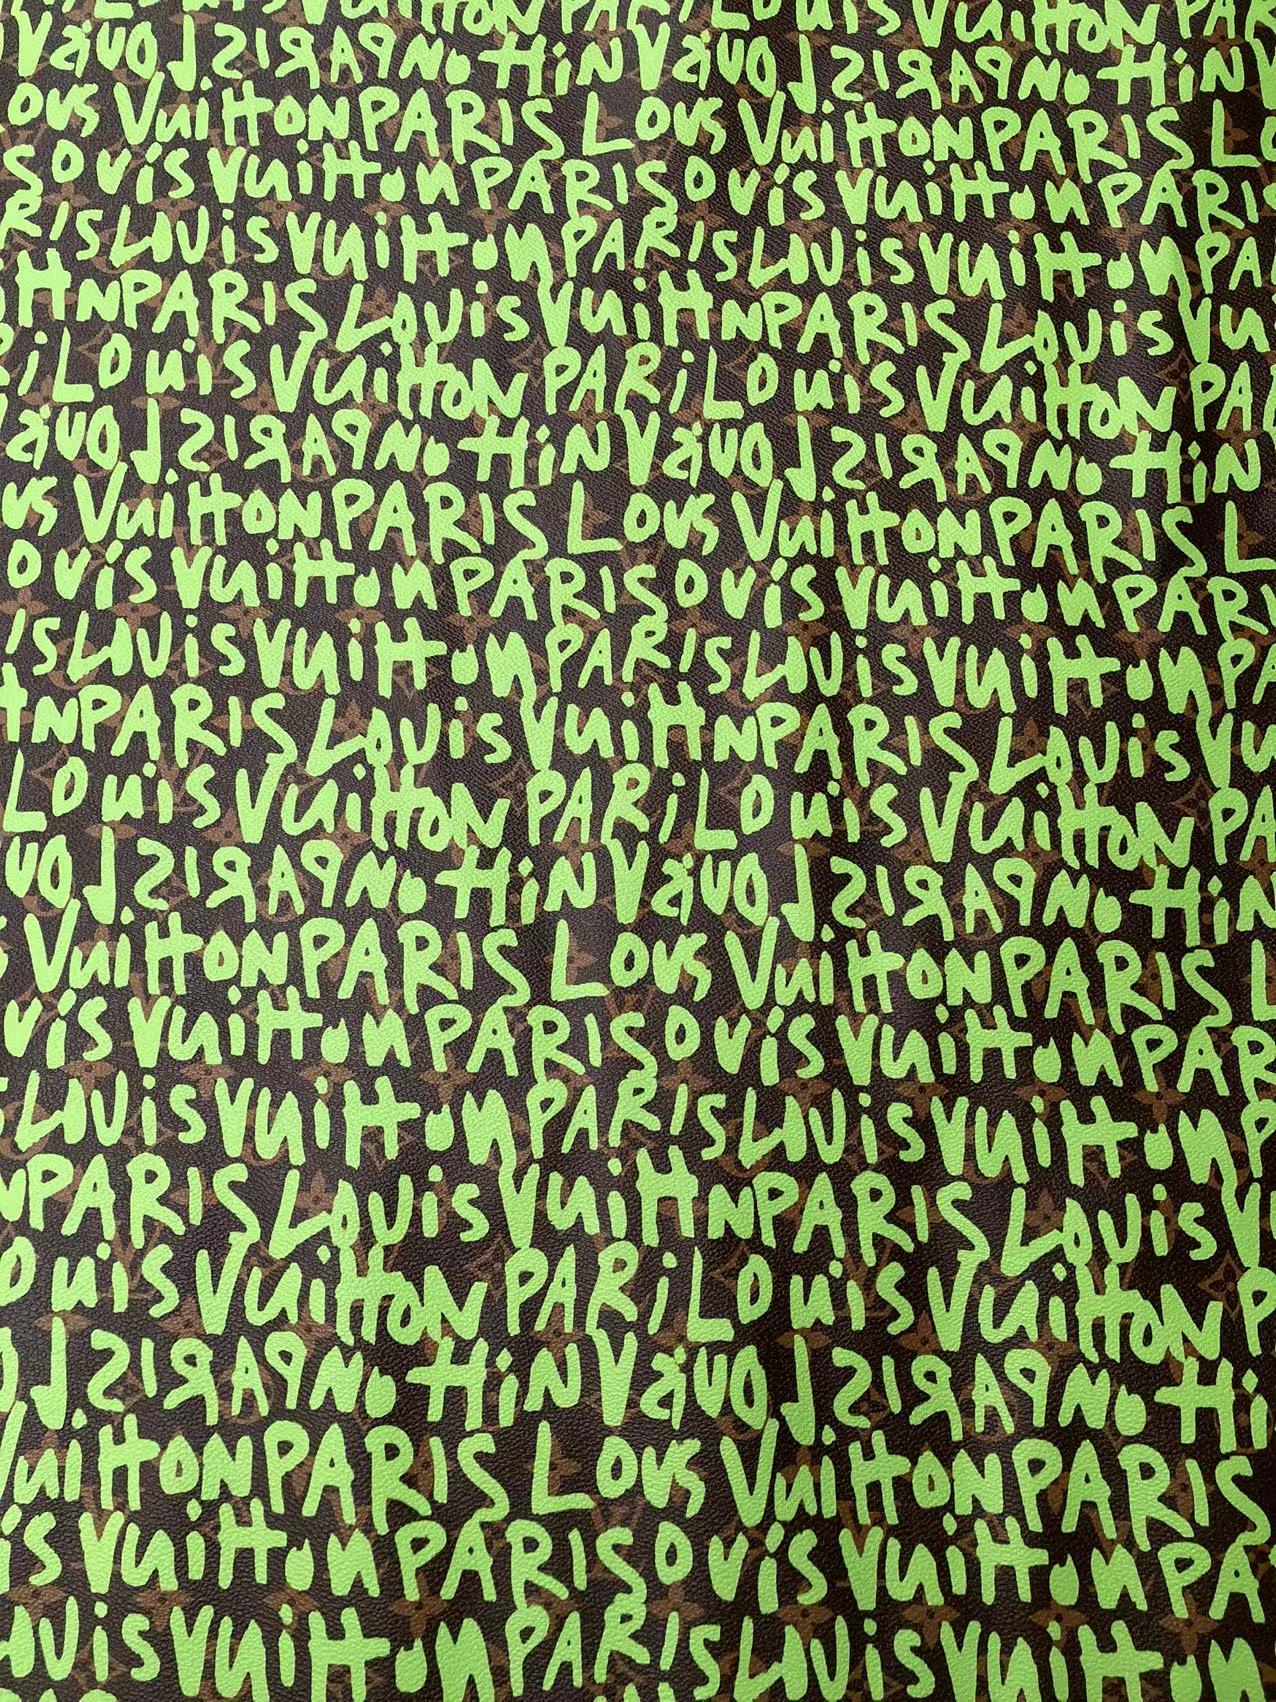 Louis Vuitton PARiL Louis Vuitton PAR
Vuitton PARIS Louis Vuitton PARIS
ous Vuitton PARIS Lous Vuitton PARIS L
Sovis Vuitton PARISovis Vuitton PARIS
RIS Louis Vuitton PARIS Louis Vuitton PA
HN PARIS Louis VuiHN PARIS Louis Vu
iL Louis Vuitton PARiL Louis Vuitton PA
Vuitton PARIS Louis Vuitton
us Vuitton PARIS Lous Vuitton PARIS L
ovis Vuitton PARISovis Vuitton PARI
IS Louis Vuitton PARIS Louis Vuitton PA
N PARIS Louis VuiHN PARIS Louis Vu
Louis Vuitton PARiL Louis Vuitton PA
Vuitton PARIS Louis Vuitton
Vuitton PARIS Lous Vuitton PARIS L
vis Vuitton PARISovis Vuitton PAR
S Louis Vuitton PARIS Louis Vuitton P
N PARIS Louis VuiHN PARIS Louis V
ouis Vuitton PARiL Louis Vuitton P
Vuitton PARIS Louis Vuitton
Vuitton PARIS Lous Vuitton PARIS
is Vuitton PARISovis Vuitton PA
ouis Vuitton PARIS Louis Vuitton